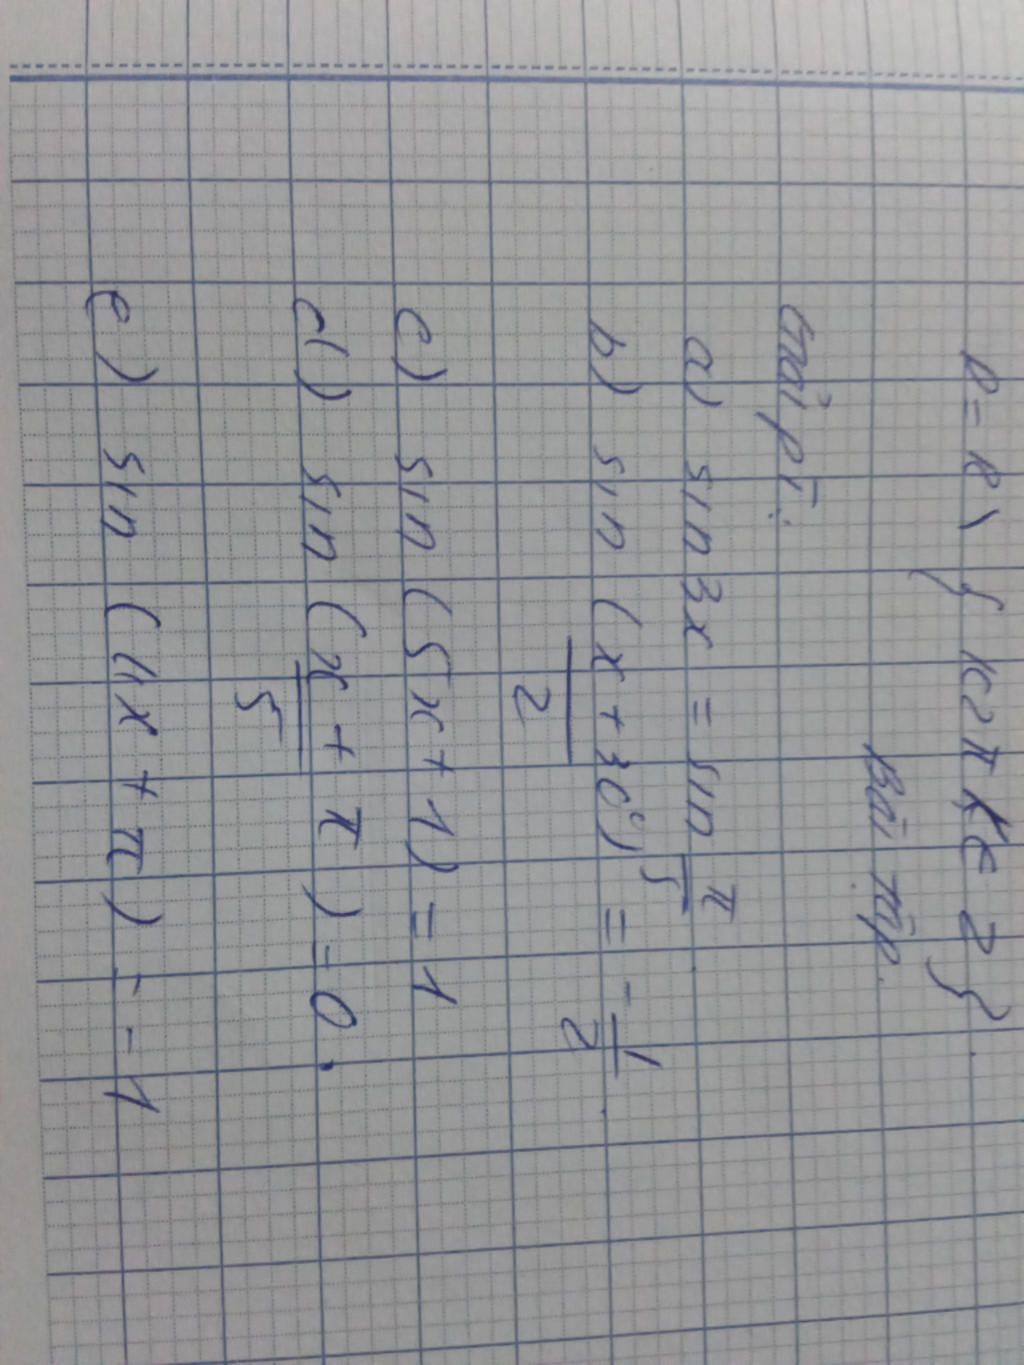 D = R \ { k2π k ∈ Z }.
Bài tập.
Giải PT:
a) sin 3x = sin π/5
b) sin (x + 30°)/2 = - 1/2
c) sin (5x + 1) = 1
d) sin (x/5 + π) = 0.
e) sin (4x + π) = -1